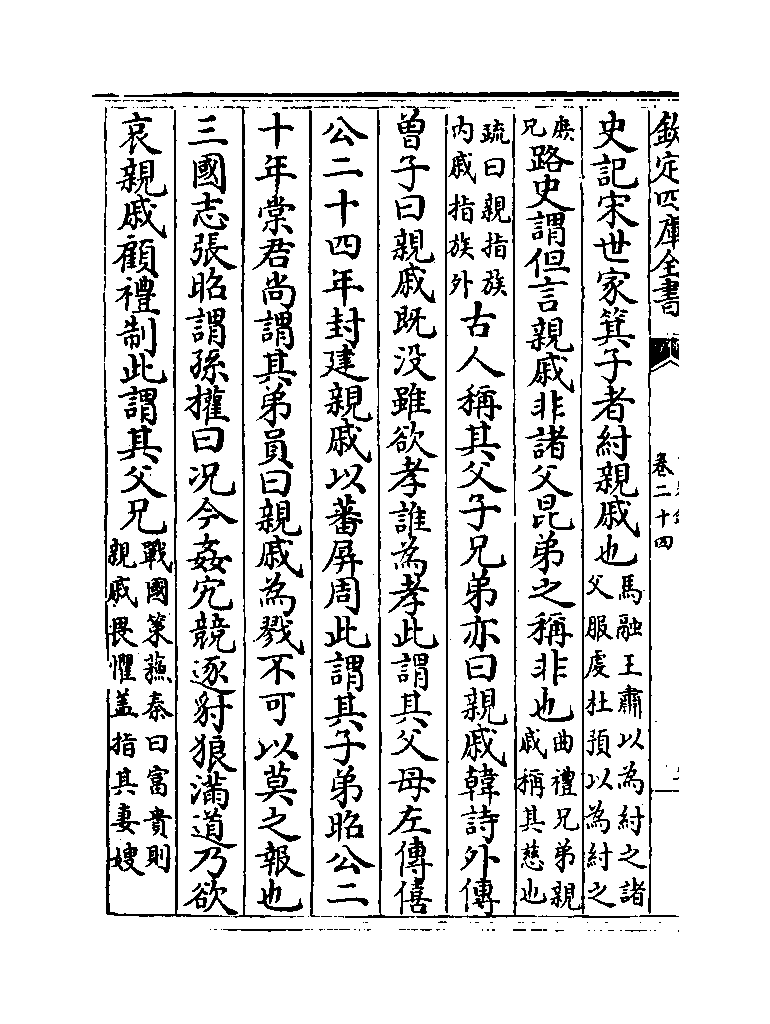 欽定四庫全書
卷二十四
史記宋世家箕子者紂親戚也馬融王肅以為紂之諸父服虔杜預以為紂之
庶兄路史謂但言親戚非諸父昆弟之稱非也曲禮兄弟親戚稱其慈也
疏曰親指族內戚指族外古人稱其父子兄弟亦曰親戚韓詩外傳
曾子曰親戚既没雖欲孝誰為孝此謂其父母左傳僖
公二十四年封建親戚以蕃屏周此謂其子弟昭公二
十年棠君尚謂其弟員曰親戚為戮不可以莫之報也
三國志張昭謂孫權曰况今姦宄競逐豺狼滿道乃欲
哀親戚顧禮制此謂其父兄戰國策蘇秦曰富貴則親戚畏懼盖指其妻嫂